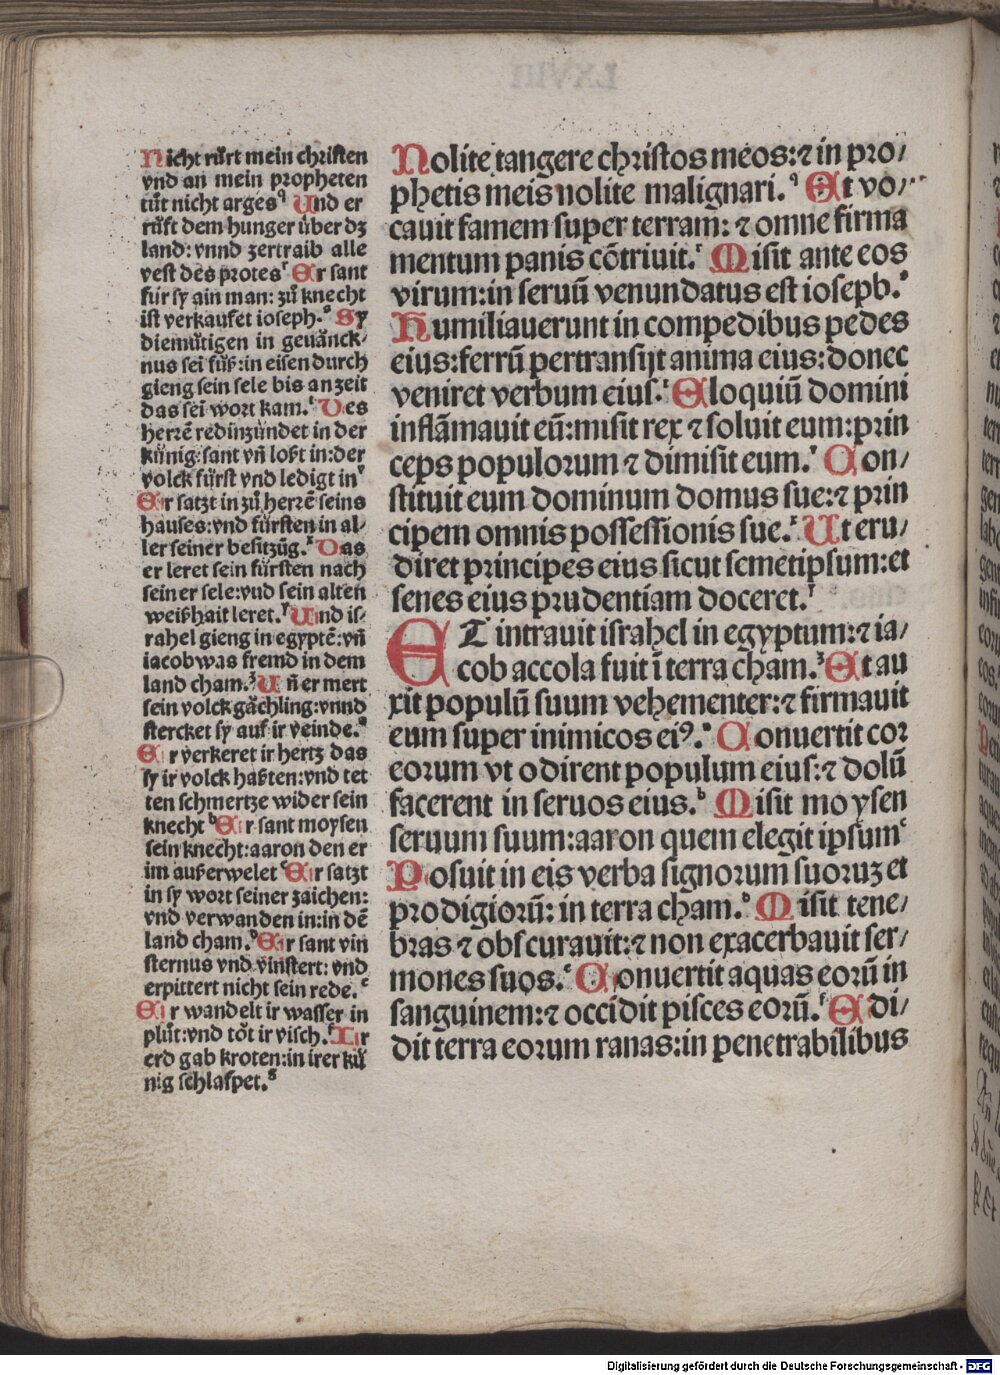 Nicht rürt mein christen
vnd an mein propheten
tüt nicht arges⁹ Und er
rüft dem hunger über dz
land: vnnd zertraib alle
vest des protes.ʳ Er sant
für sy ain man: zů knecht
ist verkaufet ioseph.ˢ Sy
diemütigen in geuånck/
nus sei füß: in eisen durch
gieng sein sele bis an zeit
das sei wort kam.ᵗ Des
herrẽ red inzündet in der
künig: sant vñ loßt in: der
volck fürst vnd ledigt inᵛ
Er satzt in zů herrẽ seins
hauses: vnd fürsten in al/
ler seiner besitzũg.ˣ Das
er leret sein fürsten nach
seiner sele: vnd sein alten
weißhait leret.ʸ Und is/
rahel gieng in egyptẽ: vñ
iacob was fremd in dem
land cham.ᶻ Uñ er mert
sein volck gåchling: vnnd
stercket sy auf ir veinde.ᵃ
Er verkeret ir hertz das
sy ir volck haßten: vnd tet
ten schmertze wider sein
knecht ᵇ Er sant moysen
sein knecht: aaron den er
im außerwelet ᶜ Er satzt
in sy wort seiner zaichen:
vnd verwanden in: in dẽ
land cham.ᵈ Er sant vin
sternus vnd vinstert: vnd
erpittert nicht sein rede.ᵉ
Er wandelt ir wasser in
plůt: vnd tôt ir visch.ᶠ Ir
erd gab kroten: in irer kü
nig schlafpet.ᵍ
Nolite tangere christos meos: ⁊ in pro/
phetis meis nolite malignari.⁹ Et vo/
cauit famem super terram: ⁊ omne firma
mentum panis cõtriuit.ʳ Misit ante eos
virum: in seruũ venundatus est ioseph.ˢ
Humiliauerunt in compedibus pedes
eius: ferrũ pertransijt anima eius: donec
veniret verbum eius.ᵗ Eloquiũ domini
inflãmauit eũ: misit rex ⁊ soluit eum: prin
ceps populorum ⁊ dimisit eum.ᵛ Con/
stituit eum dominum domus sue: ⁊ prin
cipem omnis possessionis sue.ˣ Ut eru/
diret principes eius sicut semetipsum: et
senes eius prudentiam doceret.ʸ
ET intrauit israhel in egyptum: ⁊ ia/
cob accola fuit ĩ terra cham.ᶻ Et au
xit populũ suum vehementer: ⁊ firmauit
eum super inimicos eiꝰ.ᵃ Conuertit cor
eorum vt odirent populum eius: ⁊ dolũ
facerent in seruos eius.ᵇ Misit moysen
seruum suum: aaron quem elegit ipsumᶜ
Posuit in eis verba signorum suoruz et
prodigiorũ: in terra cham.ᵈ Misit tene/
bras ⁊ obscurauit: ⁊ non exacerbauit ser/
mones suos.ᵉ Conuertit aquas eorũ in
sanguinem: ⁊ occidit pisces eorũ.ᶠ Edi/
dit terra eorum ranas: in penetrabilibus
Digitalisierung gefördert durch die Deutsche Forschungsgemeinschaft - DFG